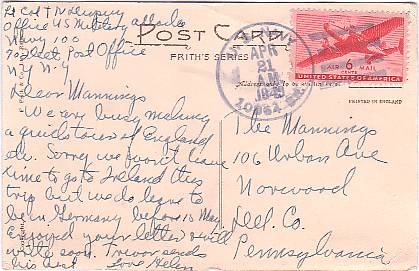 Lt Col T N Dupuy
Office US Military Attache
Navy 100
Fleet Post Office
N.Y. N.Y
POST CARD
FRITH'S SERIES
U.S. NAVY
APR
21
A.M.
AIR 6 MAIL
CENTS
UNITED STATES OF AMERICA
Address to be written here
PRINTED IN ENGLAND
Dear Mannings
We are busy making
a quick tour of England
etc. Sorry we won't have
time to go to Ireland this
trip but we do have to
be in Germany before 15 May
Enjoyed your letter & will
write soon. Trevor sends
his best Love Helen
The Mannings
106 Urban Ave
Norwood
Del. Co.
Pennsylvania